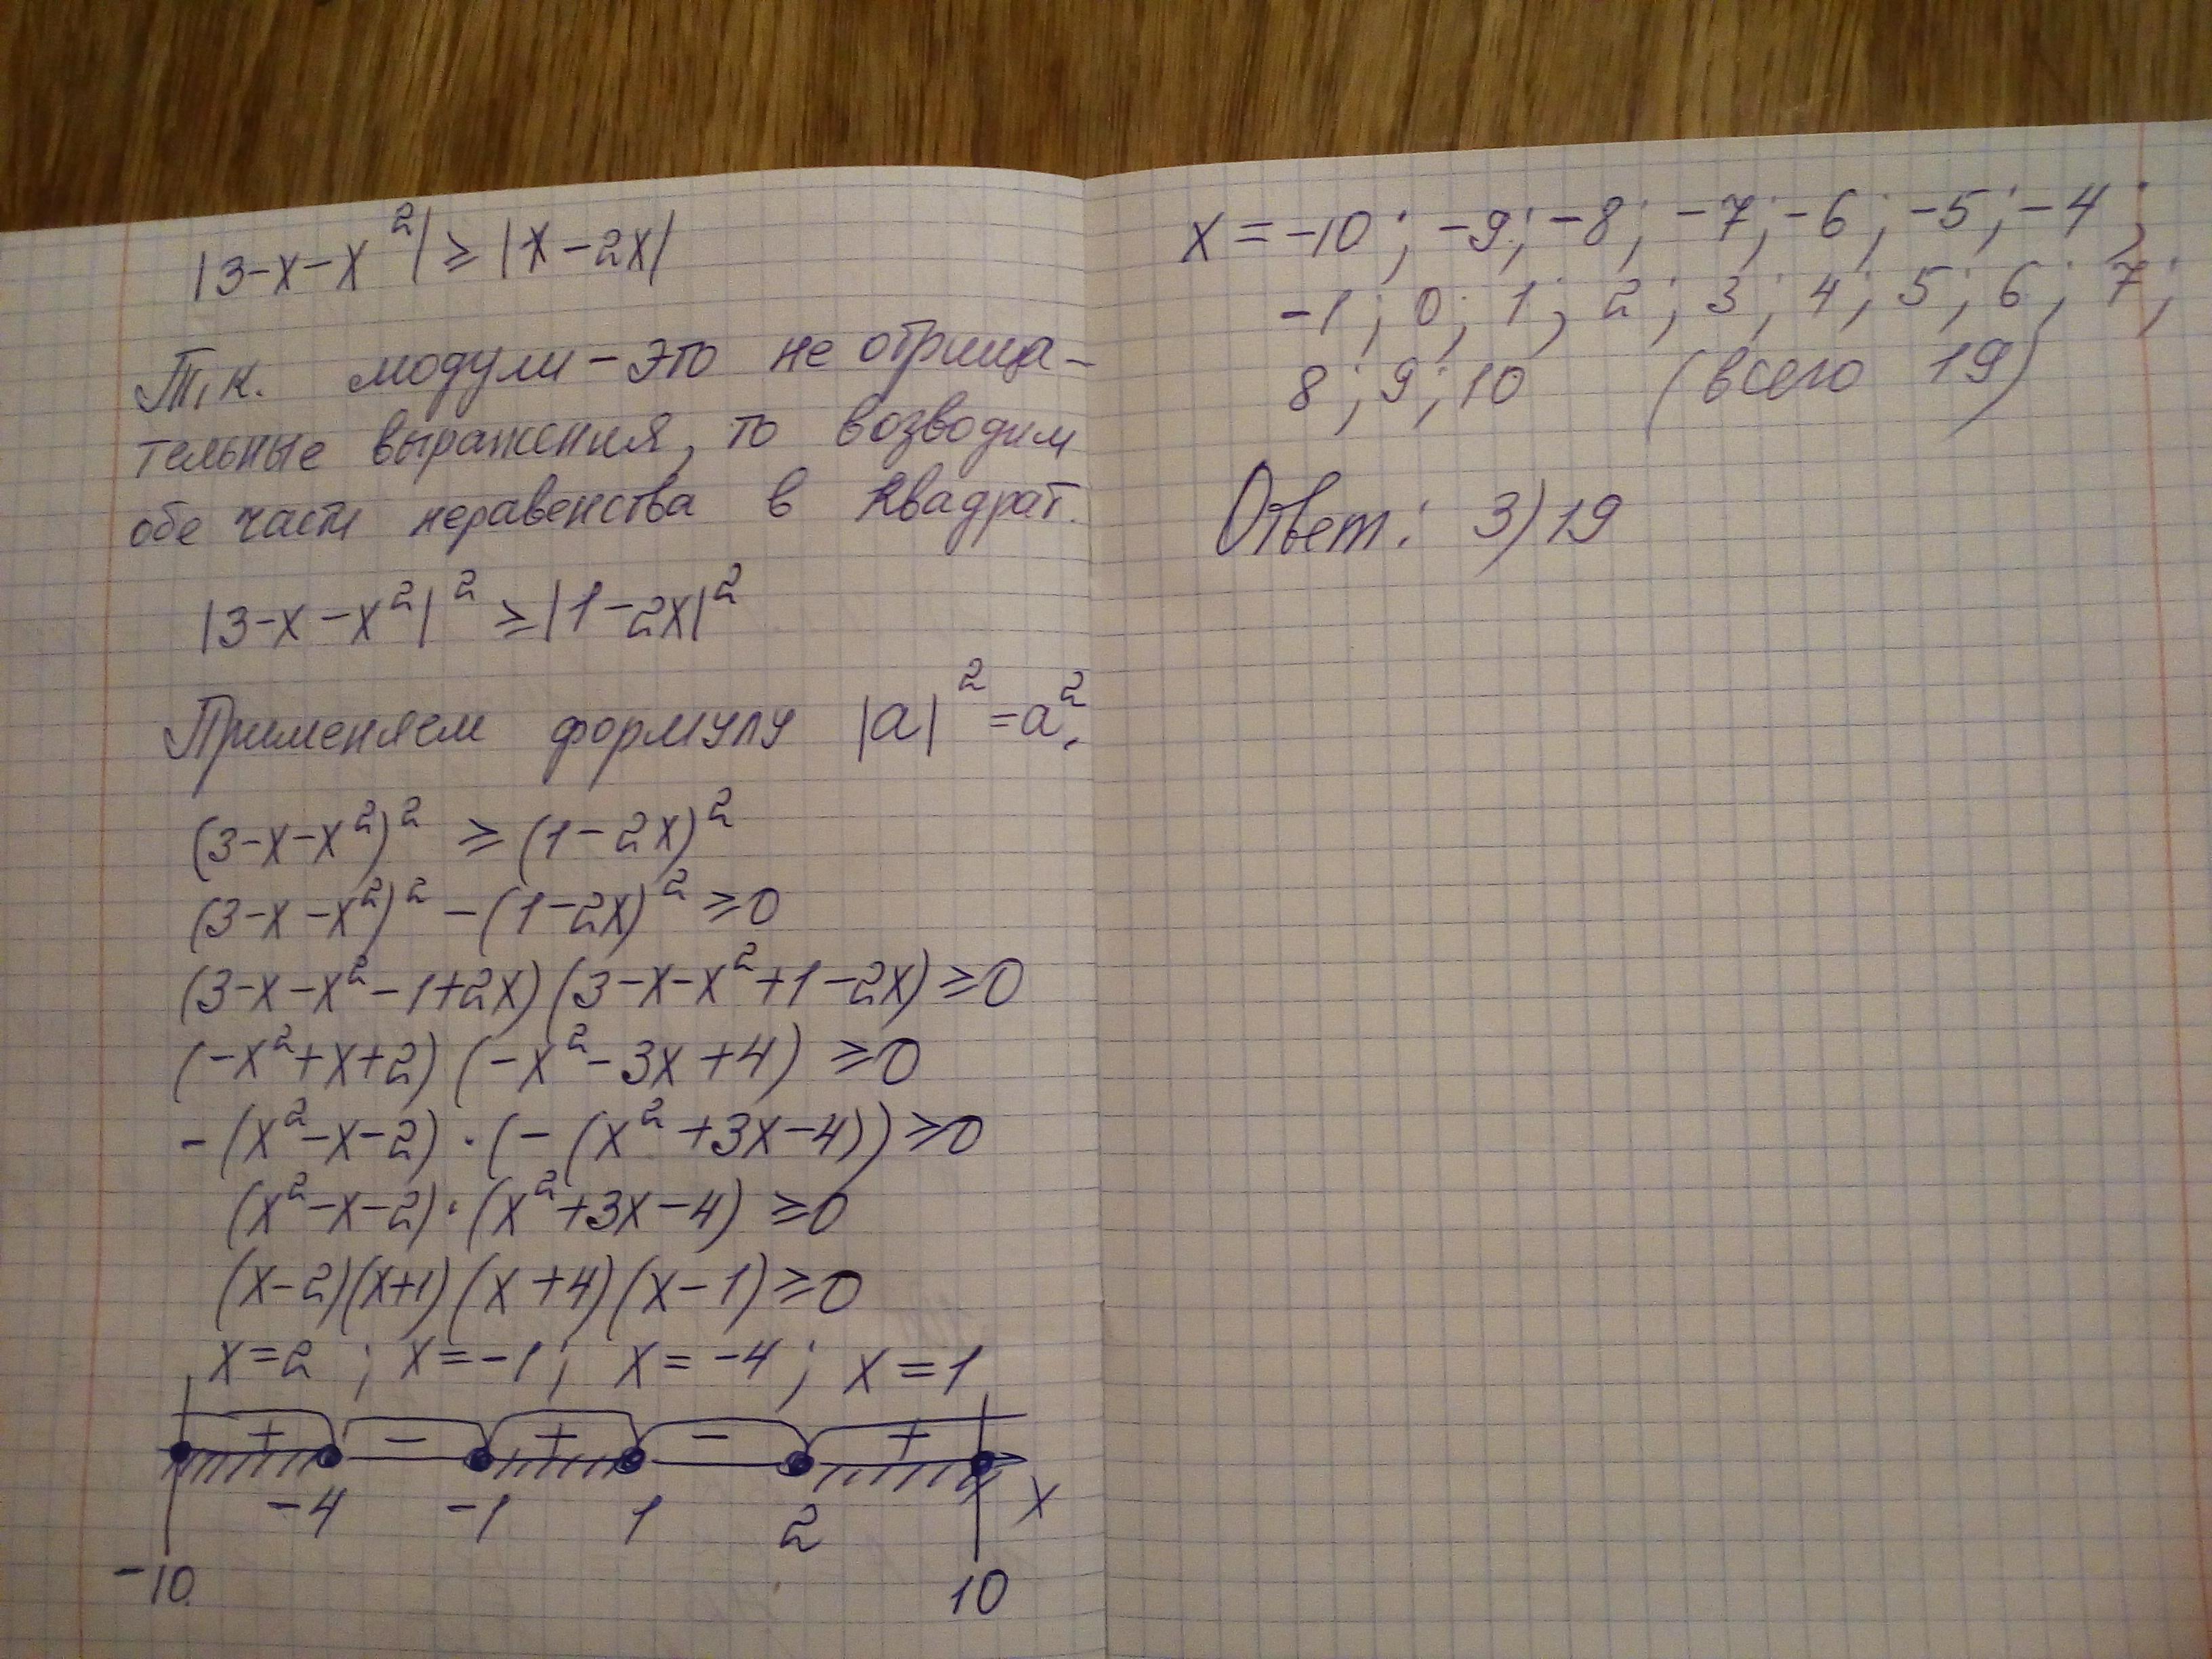 |3-x-x²| ≥ |x-2x|
Т.к. модули - это не отрица-
тельные выражения, то возводим
обе части неравенства в квадрат.
|3-x-x²|² ≥ |1-2x|²
Применяем формулу |a|² = a².
(3-x-x²)² ≥ (1-2x)²
(3-x-x²)² - (1-2x)² ≥ 0
(3-x-x²-1+2x)(3-x-x²+1-2x) ≥ 0
(-x²+x+2)(-x²-3x+4) ≥ 0
-(x²-x-2)·(-(x²+3x-4)) ≥ 0
(x²-x-2)·(x²+3x-4) ≥ 0
(x-2)(x+1)(x+4)(x-1) ≥ 0
x=2; x=-1; x=-4; x=1
+ - + - +
-4 -1 1 2 x
-10 10
x = -10; -9; -8; -7; -6; -5; -4;
-1; 0; 1; 2; 3; 4; 5; 6; 7;
8; 9; 10 (всего 19)
Ответ: 3) 19